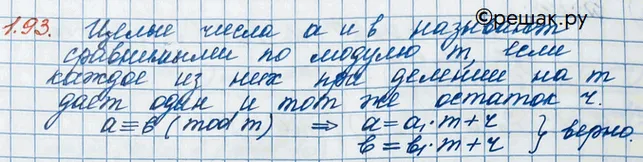 ©решак.ру
1.93. Целые числа а и в называют
сравнимыми по модулю m, если
каждое из них при делении на m
даёт один и тот же остаток r.
a ≡ в (mod m) ⇒ a = a₁·m + r } верно.
в = в₁·m + r